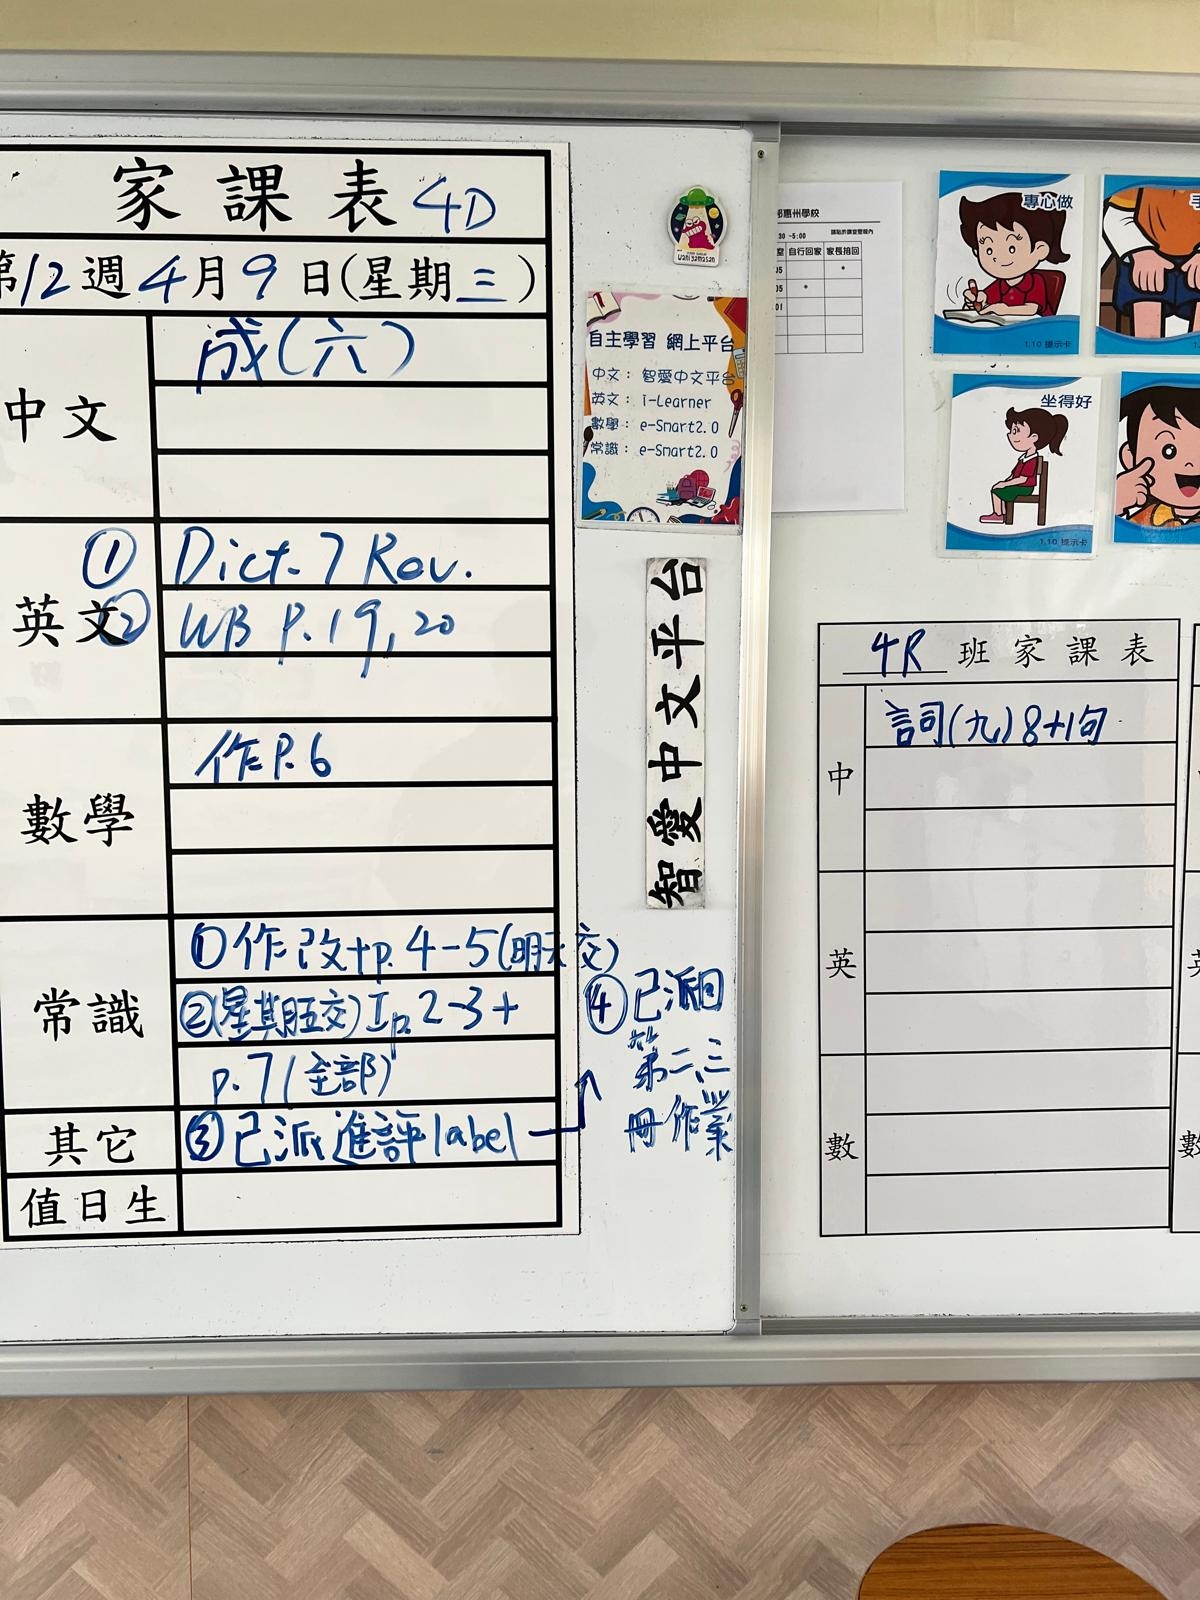 家課表 4D
第12週4月9日(星期三)
中文
成(六)
英文
① Dict. 7 Rev.
② WB P.19,20
數學
作P.6
常識
①作改+p.4-5(明天交)
②(星期五交)Ip.2-3+
p.7(全部)
其它
③已派進評label
④已派回
第二、三
冊作業
值日生
自主學習 網上平台
中文： 智愛中文平台
英文： i-Learner
數學： e-Smart2.0
常識： e-Smart2.0
智愛中文平台
惠州學校
30 ~5:00
自行回家
家長接回
05
05
01
專心做
1.10 提示卡
手
1.10 提示卡
坐得好
1.10 提示卡
1.10 提示卡
4R 班家課表
中
詞(九)8+1句
英
數